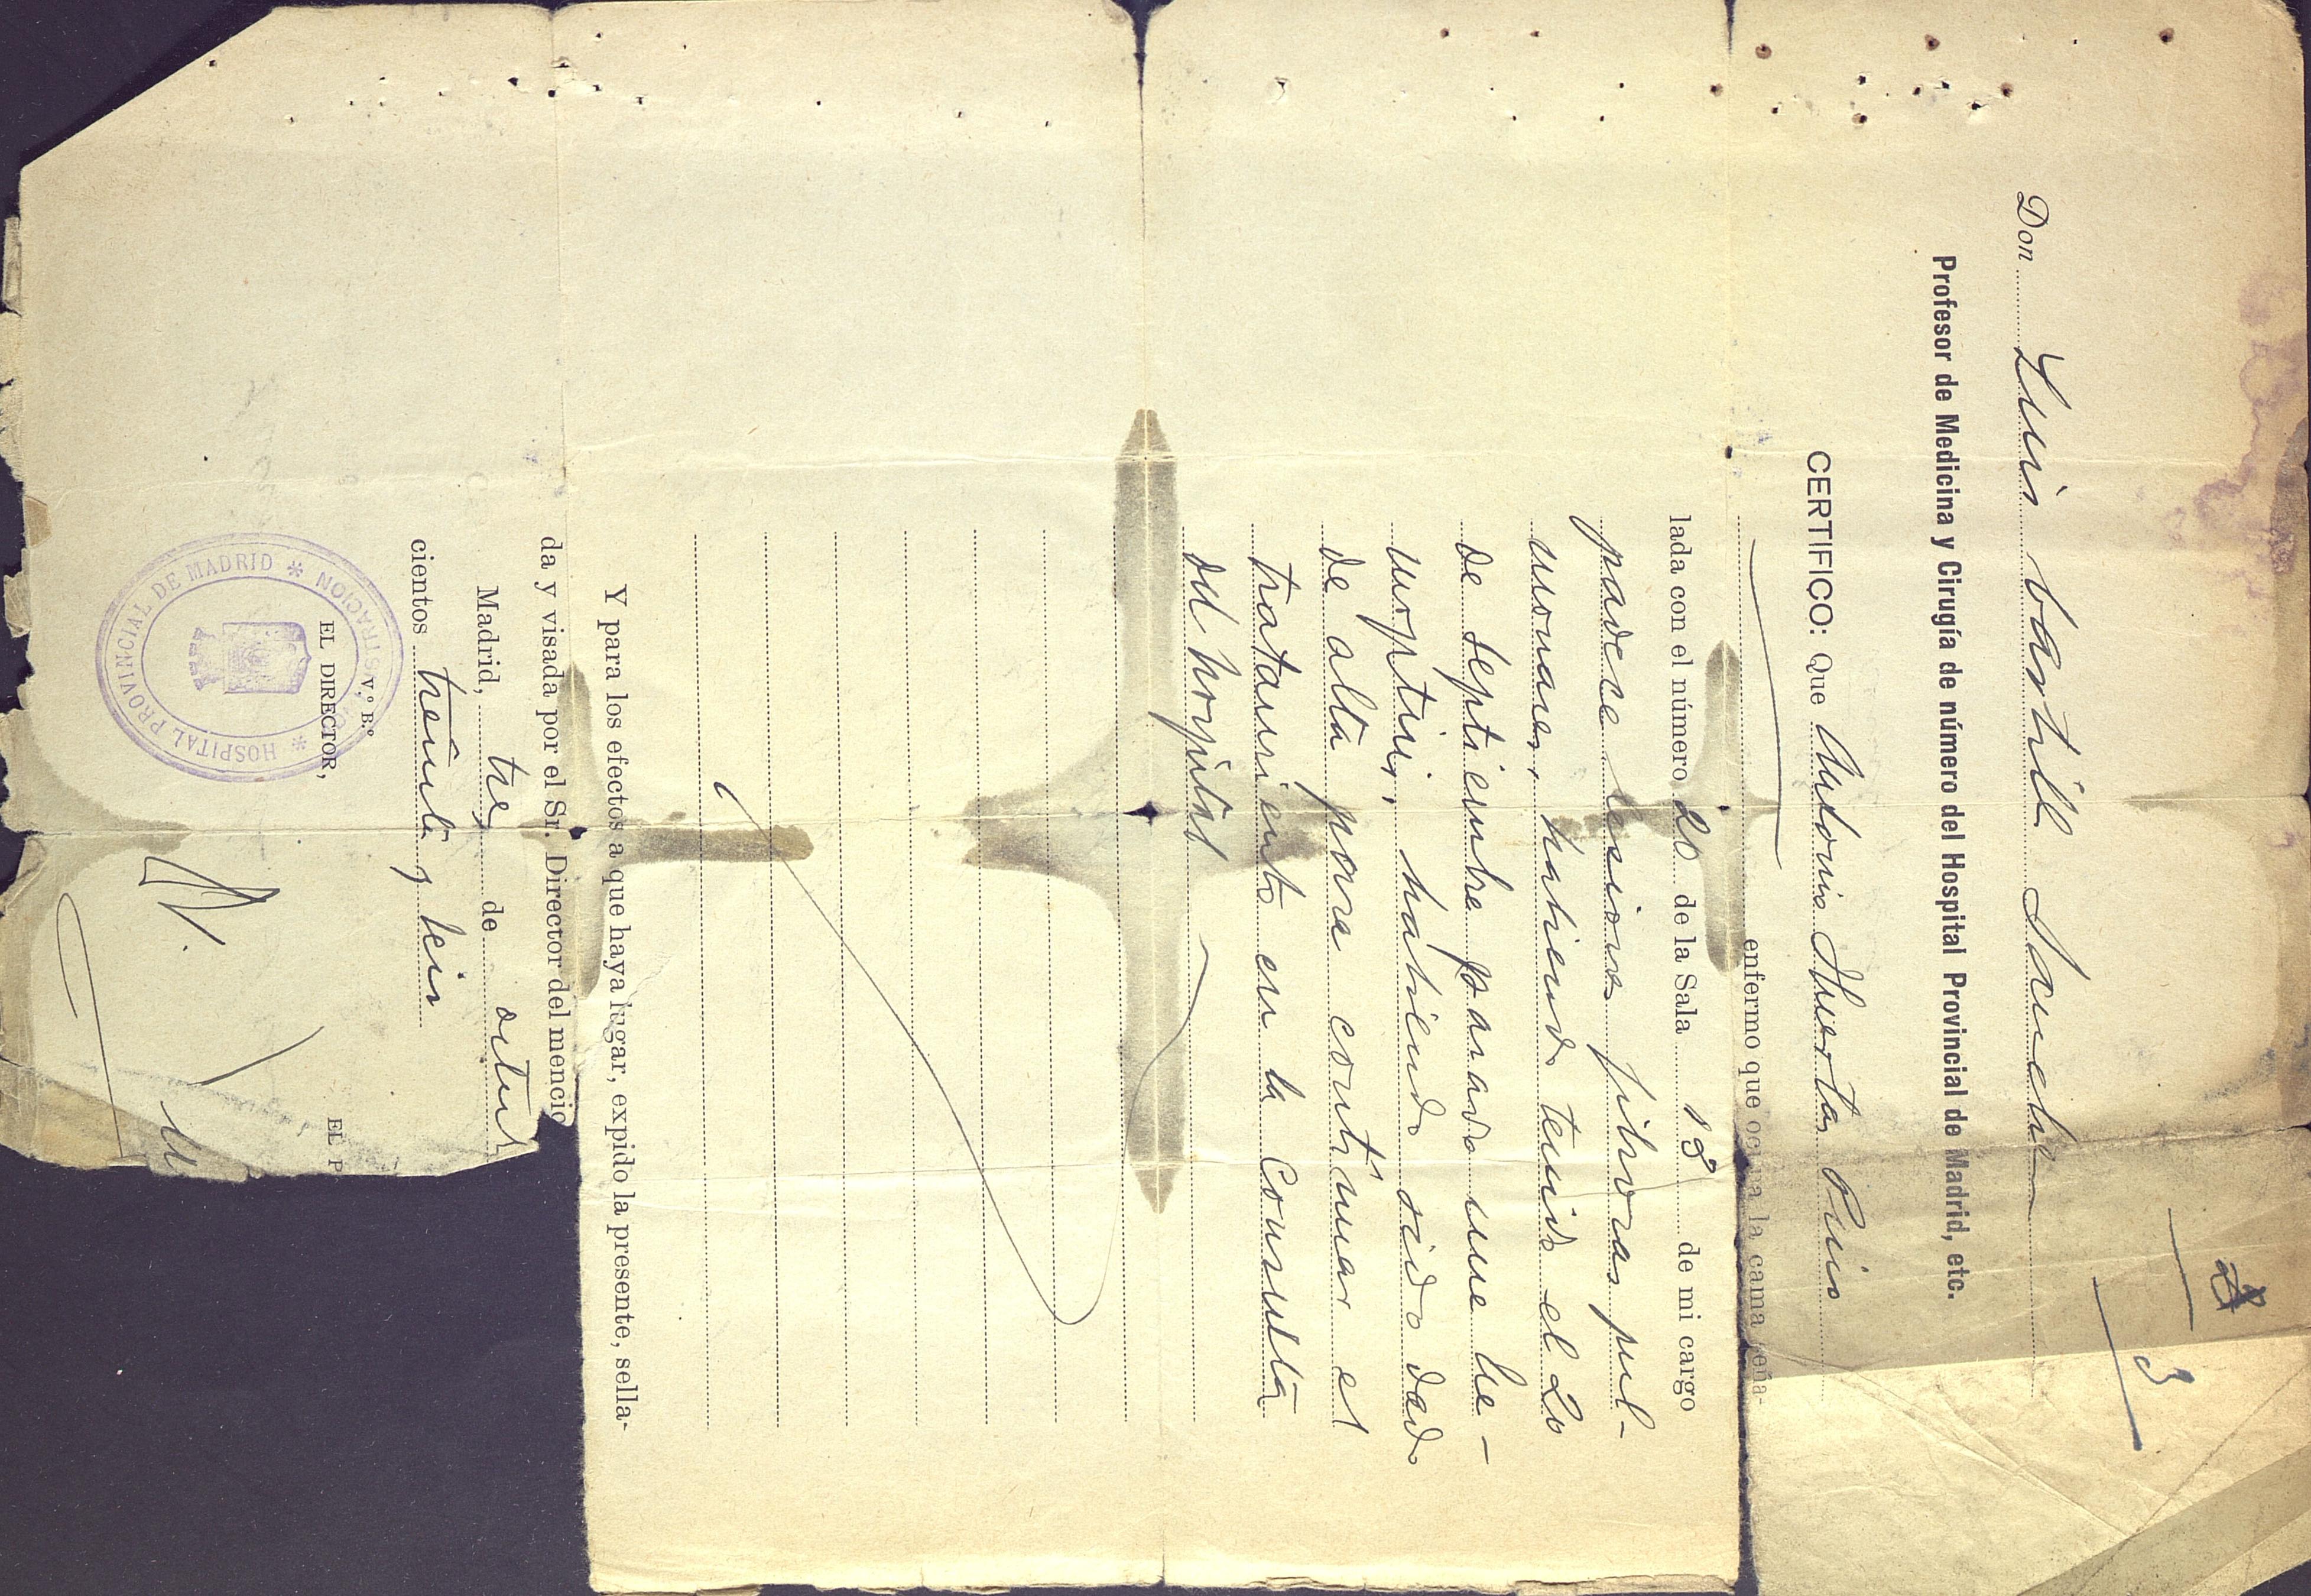 3
Don Luis Sanchez
Profesor de Medicina y Cirugía de número del Hospital Provincial de Madrid, etc.
CERTIFICO: Que Antonio Huertas
enfermo que ocupa la cama seña-
lada con el número 20 de la Sala 18 de mi cargo
padece lesiones fibrosas pul-
monares, habiendo tenido el 20
de septiembre pasado una he-
moptisis, habiendo sido dado
de alta para continuar el
tratamiento en la Consulta
del hospital
Y para los efectos a que haya lugar, expido la presente, sella-
da y visada por el Sr. Director del mencio
Madrid, tres de octub
cientos treinta y seis
V.º B.º
EL DIRECTOR,
EL P
HOSPITAL PROVINCIAL DE MADRID * ADMINISTRACION *